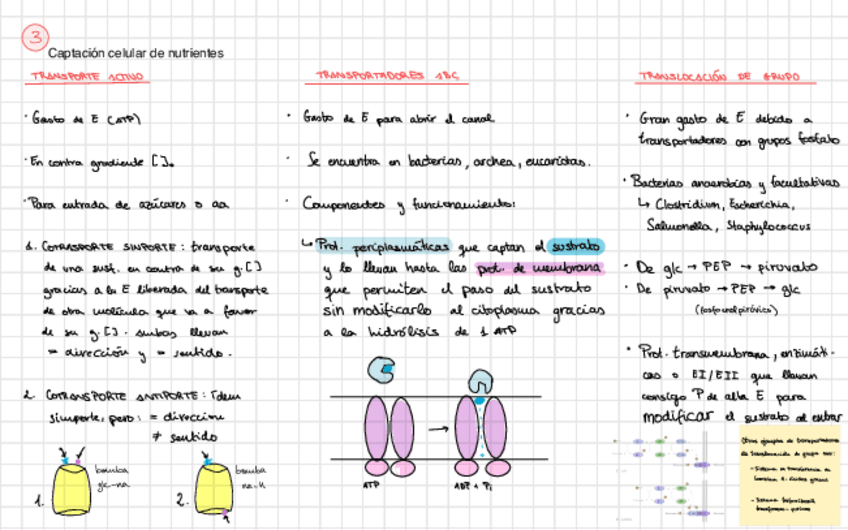 3
Captación celular de nutrientes
TRANSPORTE ACTIVO
· Gasto de E (ATP)
· En contra gradiente [ ].
· Para entrada de azúcares o aa
1. COTRANSPORTE SIMPORTE: transporte
de una sust. en contra de su g.[ ]
gracias a la E liberada del transporte
de otra molécula que va a favor
de su g.[ ]. Ambas llevan
= dirección y = sentido.
2. COTRANSPORTE ANTIPORTE: ídem
simporte, pero: = dirección
≠ sentido
1.
bomba
glc-na
2.
bomba
na-H
TRANSPORTADORES ABC
· Gasto de E para abrir el canal
· Se encuentra en bacterias, archea, eucariotas.
· Componentes y funcionamiento:
↳ Prot. periplasmáticas que captan el sustrato
y lo llevan hasta las prot. de membrana
que permiten el paso del sustrato
sin modificarlo al citoplasma gracias
a la hidrólisis de 1 ATP
ATP
ADP + Pi
TRANSLOCACIÓN DE GRUPO
· Gran gasto de E debido a
transportadores con grupos fosfato
· Bacterias anaerobias y facultativas
↳ Clostridium, Escherichia,
Salmonella, Staphylococcus
· De glc → PEP → piruvato
· De piruvato → PEP → glc
(fosfoenolpirúvico)
· Prot. transmembrana, enzimáti-
cas o EI/EII que llevan
consigo P de alta E para
modificar el sustrato al entrar
Otros ejemplos de transportadores
de translocación de grupo son: